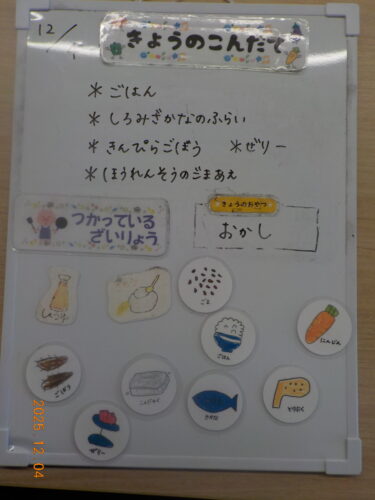 12/
きょうのこんだて
* ごはん
* しろみざかなのふらい
* きんぴらごぼう * ぜりー
* ほうれんそうのごまあえ
つかっている
ざいりょう
きょうのおやつ
おかし
ごま
しょうゆ
ごはん
にんじん
ごぼう
こんにゃく
さかな
とりにく
ゼリー
2025.12.04